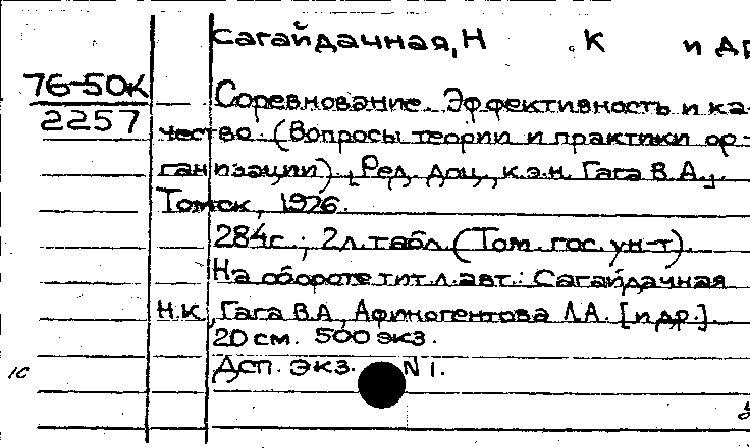 Сагайдачная, Н . К и др
76-50к
2257
Соревнование. Эффективность и ка-
чество. (Вопросы теории и практики ор-
ганизации). Ред. доц., к.э.н. Гага В.А.,
Томск, 1976.
284с.; 2л.табл. (Том. гос. ун-т).
На обороте тит.л.авт.: Сагайдачная
Н.К, Гага В.А, Афиногентова Л.А. [и др.].
20 см. 500 экз.
Дсп. Экз. N 1.
1С